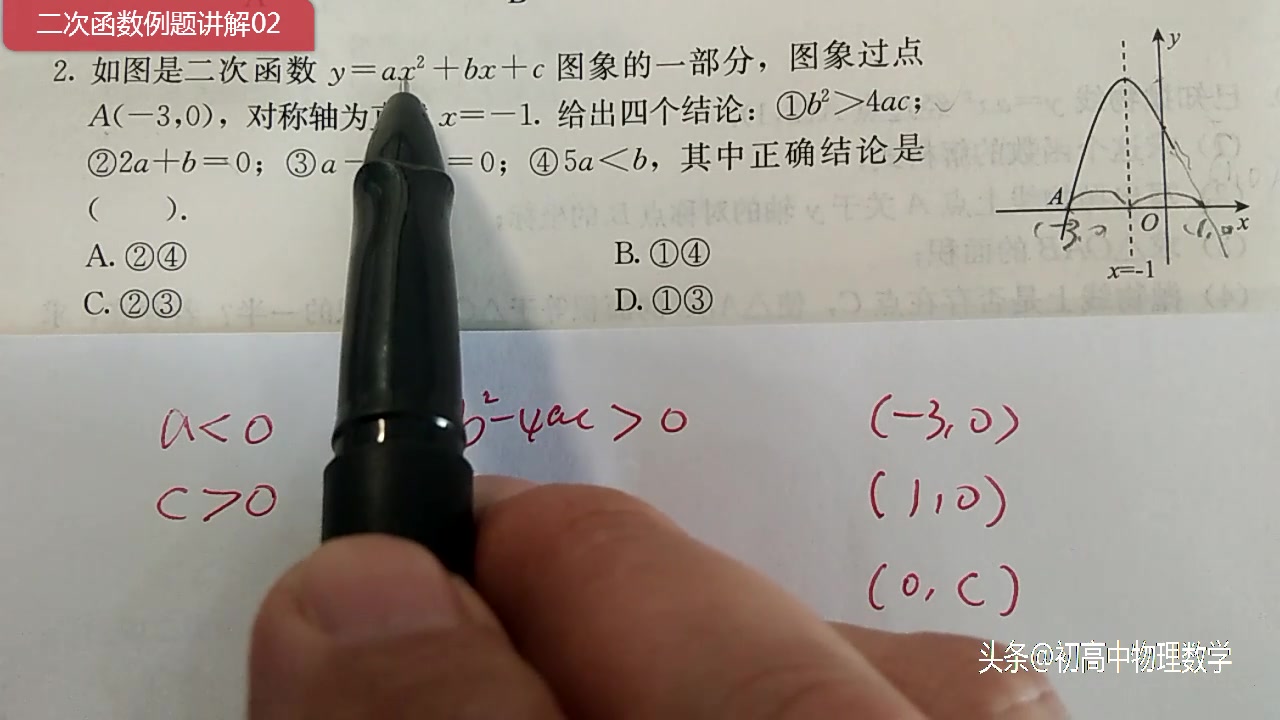 二次函数例题讲解02
2. 如图是二次函数 y=ax²+bx+c 图象的一部分，图象过点
A(-3,0)，对称轴为 x=-1. 给出四个结论：①b²>4ac；
②2a+b=0；③a- =0；④5a<b，其中正确结论是
(　　).
A. ②④
B. ①④
C. ②③
D. ①③
y
A
O
x
(-3,0
(1,
x=-1
a<0
b²-4ac>0
(-3,0)
c>0
(1,0)
(0,c)
头条@初高中物理数学